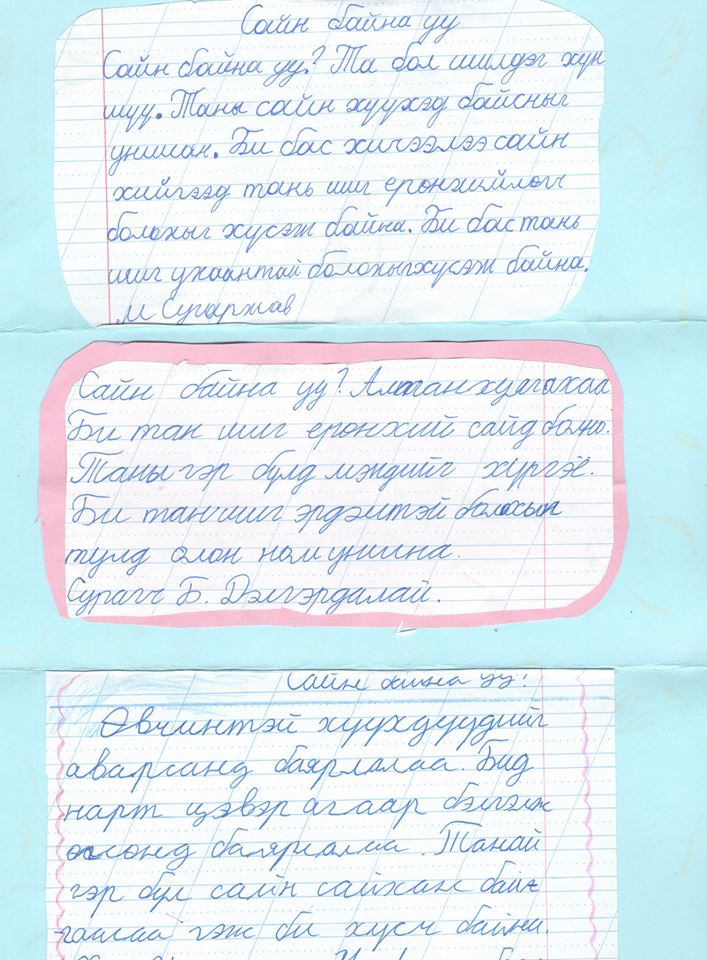 Сайн байна уу
Сайн байна уу? Та бол шилдэг хүн
шүү. Таны сайн хүүхэд байсныг
уншсан. Би бас хичээлээ сайн
хийгээд тань шиг еронхийлөгч
болохыг хүсэж байна. Би бас тань
шиг ухаантай болохыг хүсэж байна.
М Сугаржав
Сайн байна уу? Алтанхуяг ахаа
Би тан шиг еронхий сайд болно.
Таны гэр бүлд мэндийг хүргэе.
Би тан шиг эрдэмтэй болохын
тулд олон ном уншина.
Сурагч Б. Дэлгэрдалай.
Сайн байна уу?
Өвчинтэй хүүхдүүдийг
аварсанд баярлалаа. Бид
нарт цэвэр агаар бэлэглэж
өгсөнд баярлалаа. Танай
гэр бүл сайн сайхан байг
гэж би хүсч байна.